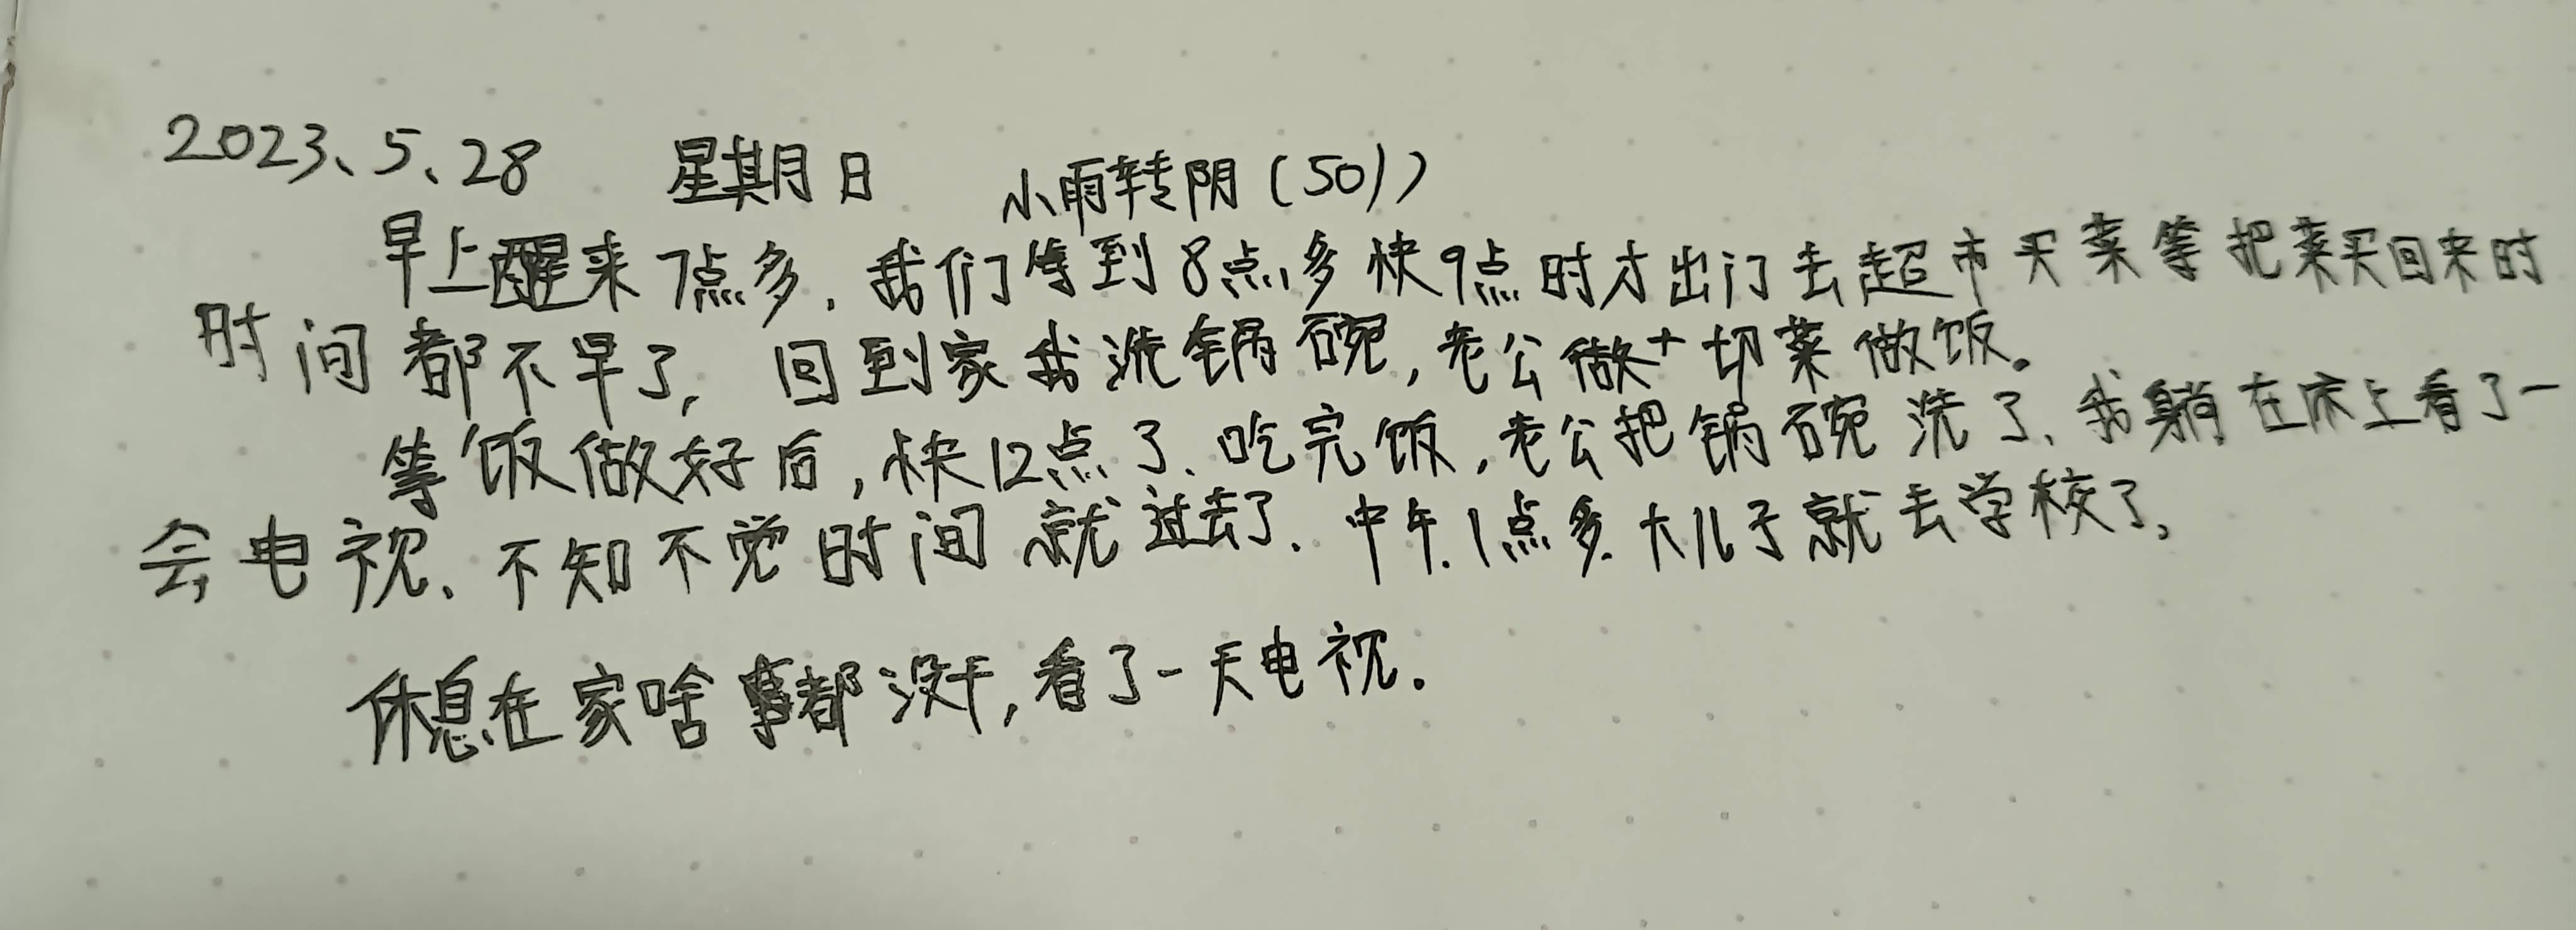 2023、5、28 星期日 小雨转阴(50))
早上醒来7点多,我们等到8点多快9点时才出门去超市买菜等把菜买回来时
时间都不早了,回到家我洗锅碗,老公做+切菜做饭。
等饭做好后,快12点了、吃完饭,老公把锅碗洗了、我躺在床上看了一
会电视、不知不觉时间就过去了.中午.1点多.大儿子就去学校了,
休息在家啥事都没干,看了一天电视.